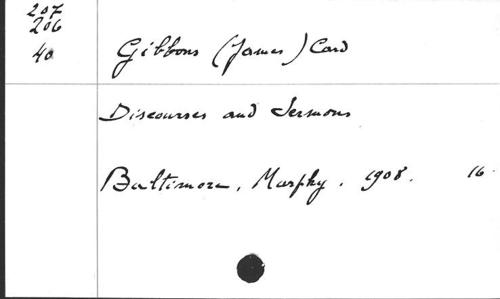 207
206
40
Gibbons (James) Card
Discourses and Sermons
Baltimore, Murphy. 1908. 16.